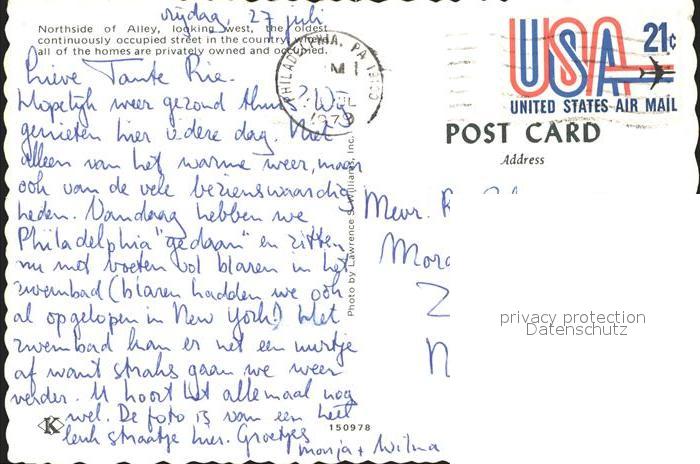 vrijdag, 27 juli
Northside of Alley, looking west, the oldest
continuously occupied street in the country where
all of the homes are privately owned and occupied.
PHILADELPHIA, PA
1979
USA 21¢
UNITED STATES AIR MAIL
POST CARD
Address
Lieve Tante Rie.
Hopelijk weer gezond thuis? Wij
genieten hier iedere dag. Niet
alleen van het warme weer, maar
ook van de vele bezienswaardig
heden. Vandaag hebben we
Philadelphia "gedaan" en zitten
nu met voeten vol blaren in het
zwembad (blaren hadden we ook
al opgelopen in New York!) Het
zwembad kan er net een uurtje
af want straks gaan we weer
verder. U hoort het allemaal nog
wel. De foto is van een heel
leuk straatje hier. Groetjes
Monja + Wilma
Photo by Lawrence S. Williams, Inc.
Mevr. R
K
150978
privacy protection
Datenschutz